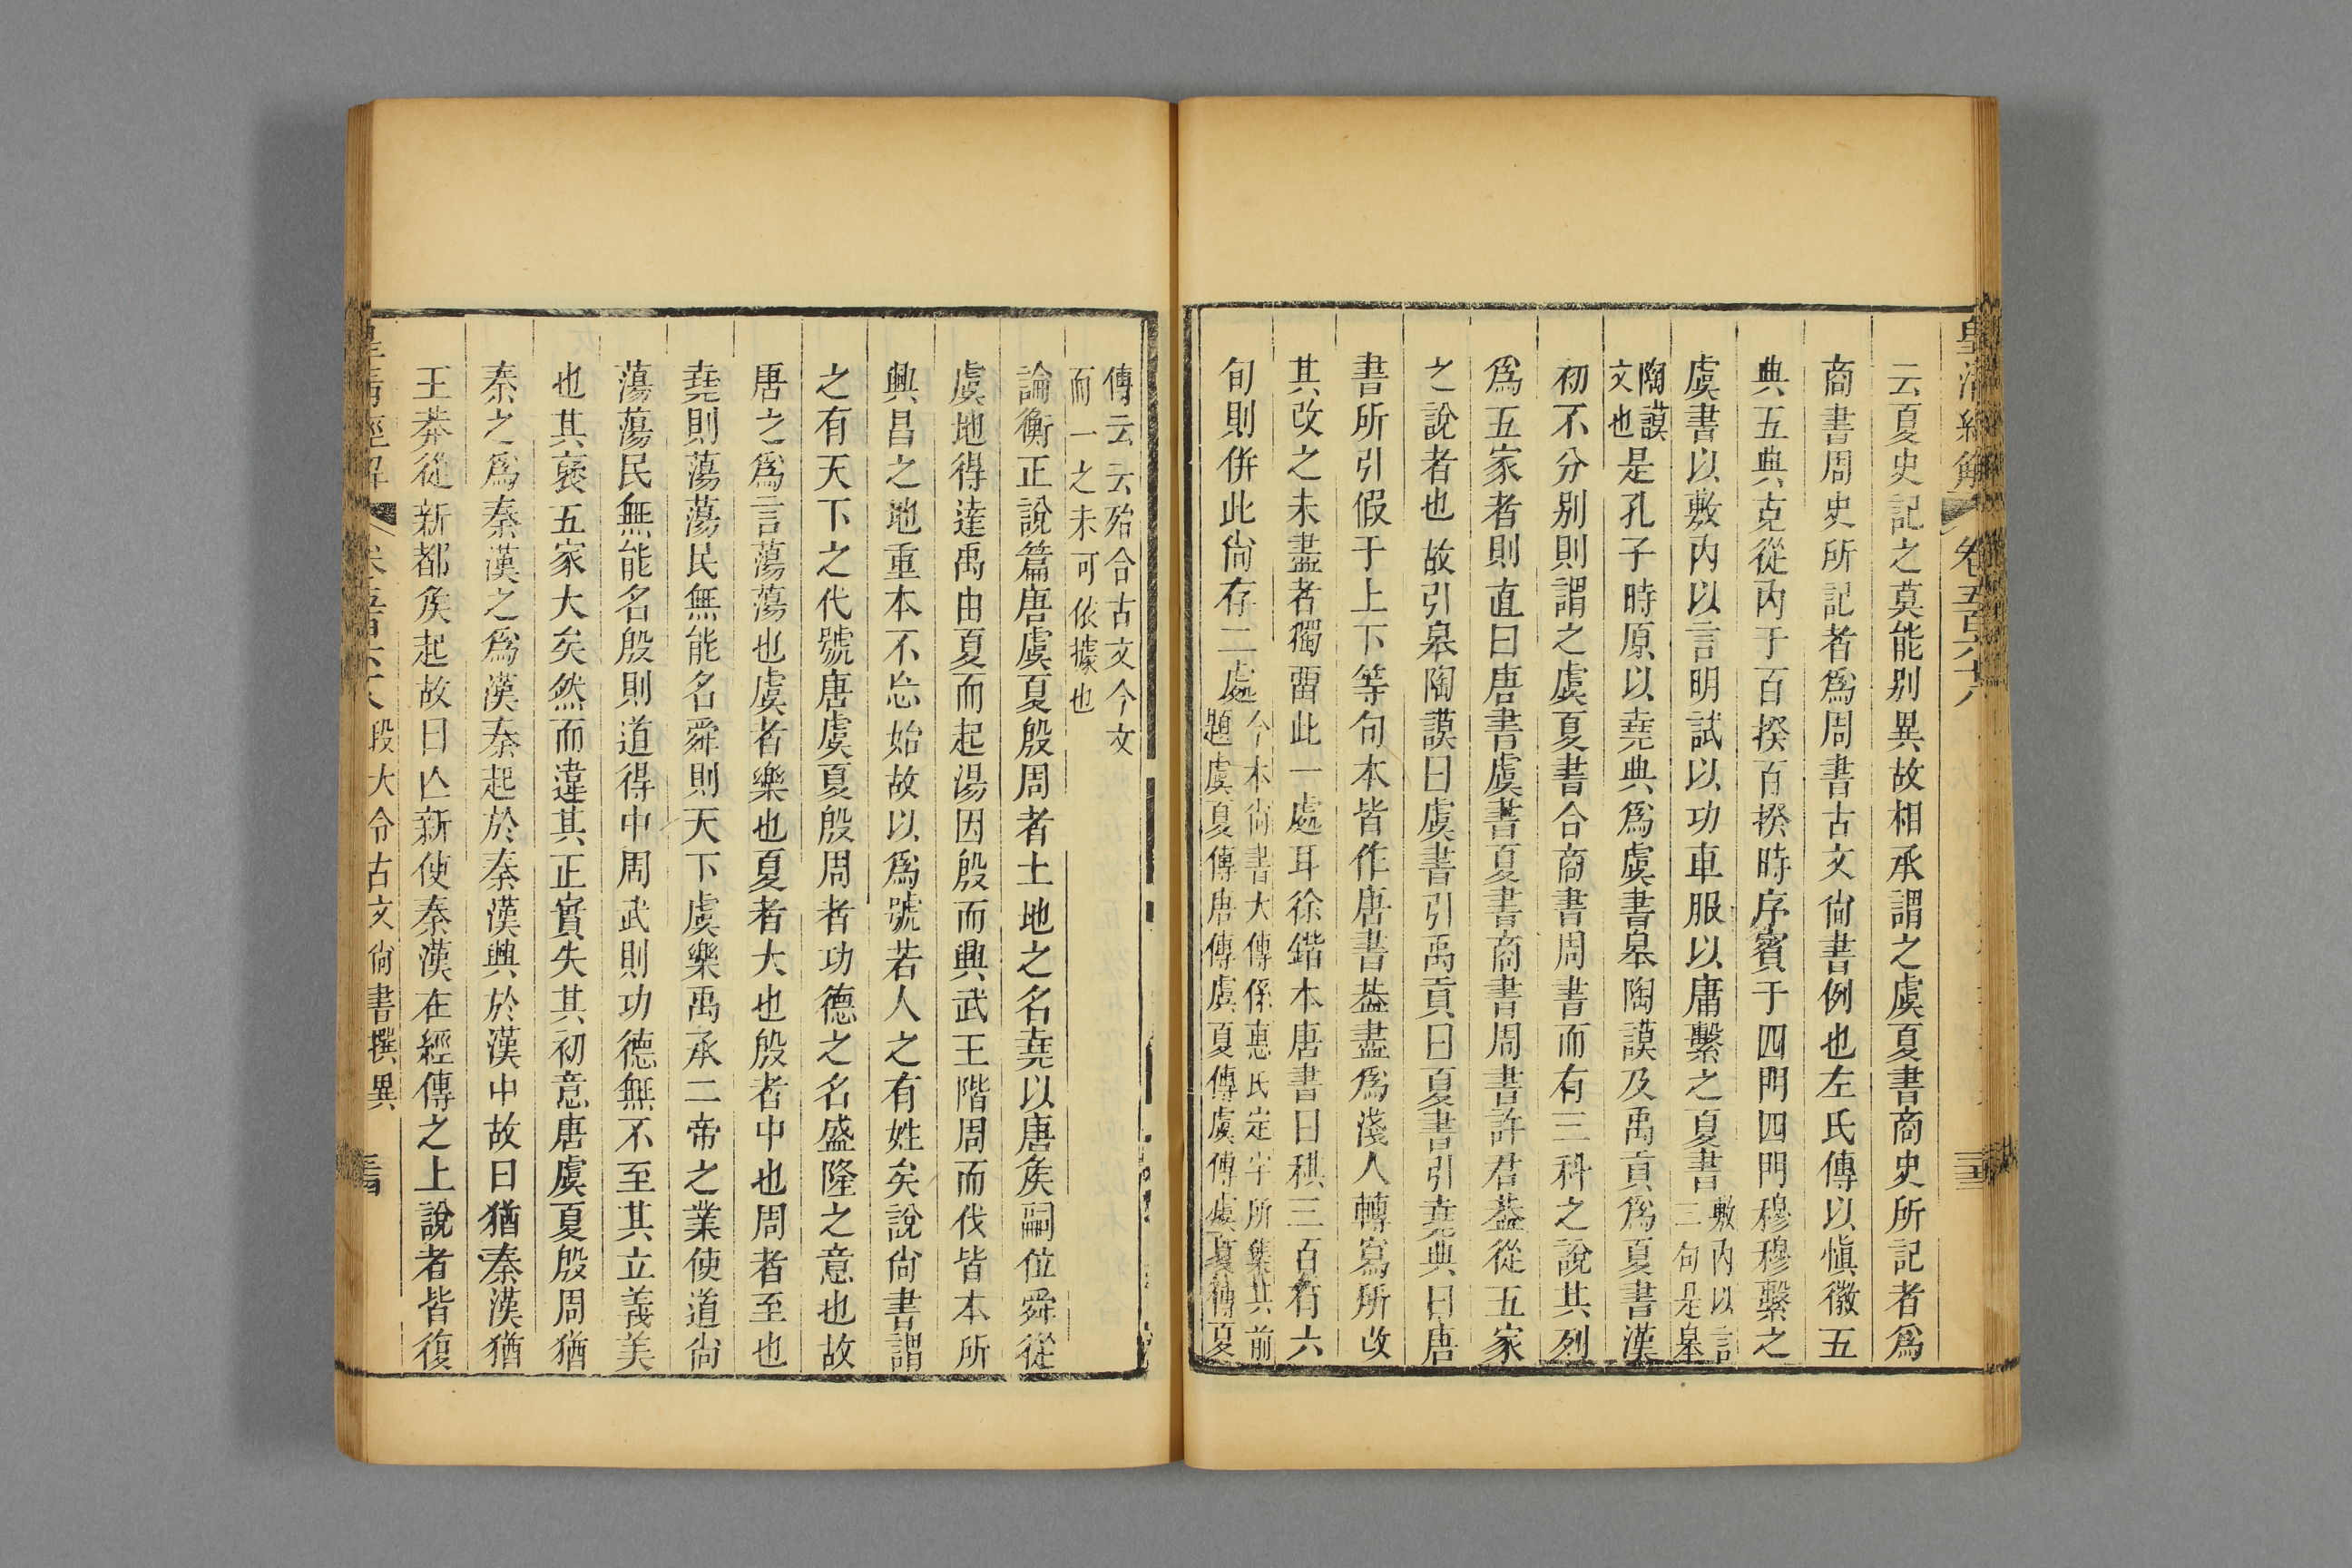 皇清經解 卷五百六十八
云夏史記之莫能別異故相承謂之虞夏書商史所記者爲
商書周史所記者爲周書古文尙書例也左氏傳以愼徽五
典五典克從內于百揆百揆時序賓于四門四門穆穆繫之
虞書以敷內以言明試以功車服以庸繫之夏書敷內以言三句是皋
陶謨文也是孔子時原以堯典爲虞書皋陶謨及禹貢爲夏書漢
初不分別則謂之虞夏書合商書周書而有三科之說其列
爲五家者則直曰唐書虞書夏書商書周書許君葢從五家
之說者也故引皋陶謨曰虞書引禹貢曰夏書引堯典曰唐
書所引假于上下等句本皆作唐書葢盡爲淺人轉寫所改
其改之未盡者獨畱此一處耳徐鍇本唐書曰稘三百有六
旬則併此尙存二處今本尙書大傳係惠氏定宇所集其前題虞夏傳唐傳虞夏傳虞傳虞夏傳夏
傳云云殆合古文今文而一之未可依據也
論衡正說篇唐虞夏殷周者土地之名堯以唐矦嗣位舜從
虞地得達禹由夏而起湯因殷而興武王階周而伐皆本所
興昌之地重本不忘始故以爲號若人之有姓矣說尙書謂
之有天下之代號唐虞夏殷周者功德之名盛隆之意也故
唐之爲言蕩蕩也虞者樂也夏者大也殷者中也周者至也
堯則蕩蕩民無能名舜則天下虞樂禹承二帝之業使道尙
蕩蕩民無能名殷則道得中周武則功德無不至其立義美
也其襃五家大矣然而違其正實失其初意唐虞夏殷周猶
秦之爲秦漢之爲漢秦起於秦漢興於漢中故曰猶秦漢猶
王莽從新都矦起故曰亾新使秦漢在經傳之上說者皆復
皇清經解 卷五百六十八 段大令古文尙書撰異